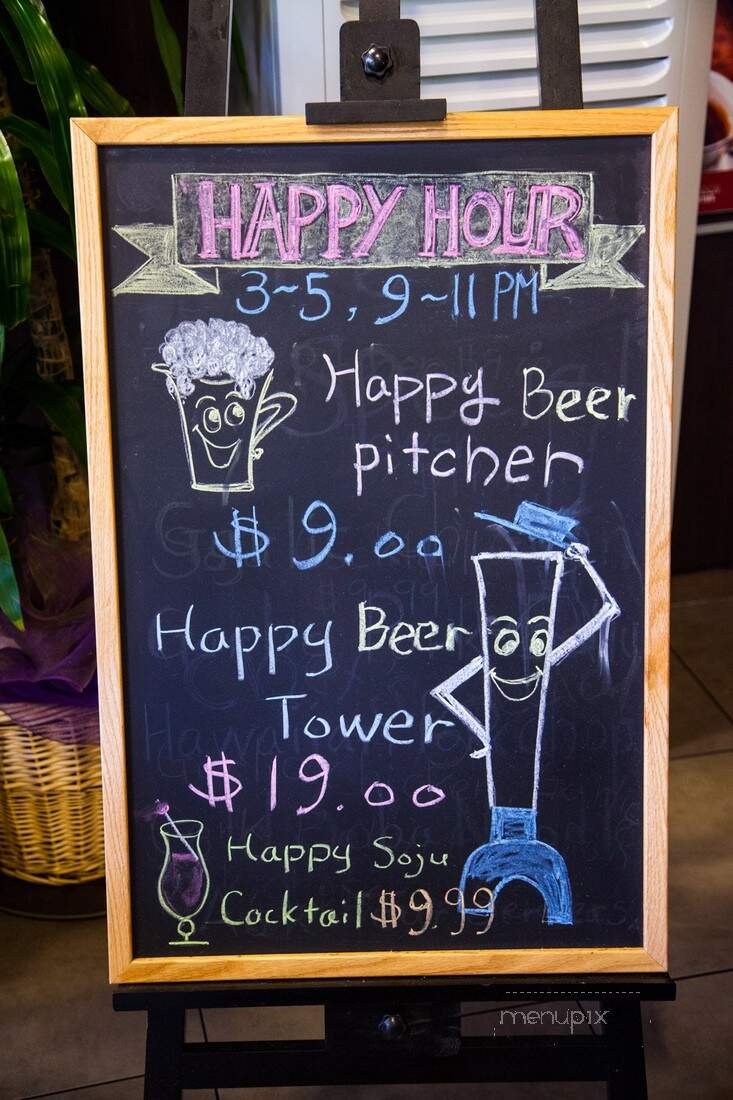 HAPPY HOUR
3~5, 9~11 PM
Happy Beer
pitcher
$9.00
Happy Beer
Tower
$19.00
Happy Soju
Cocktail $9.99
menupix